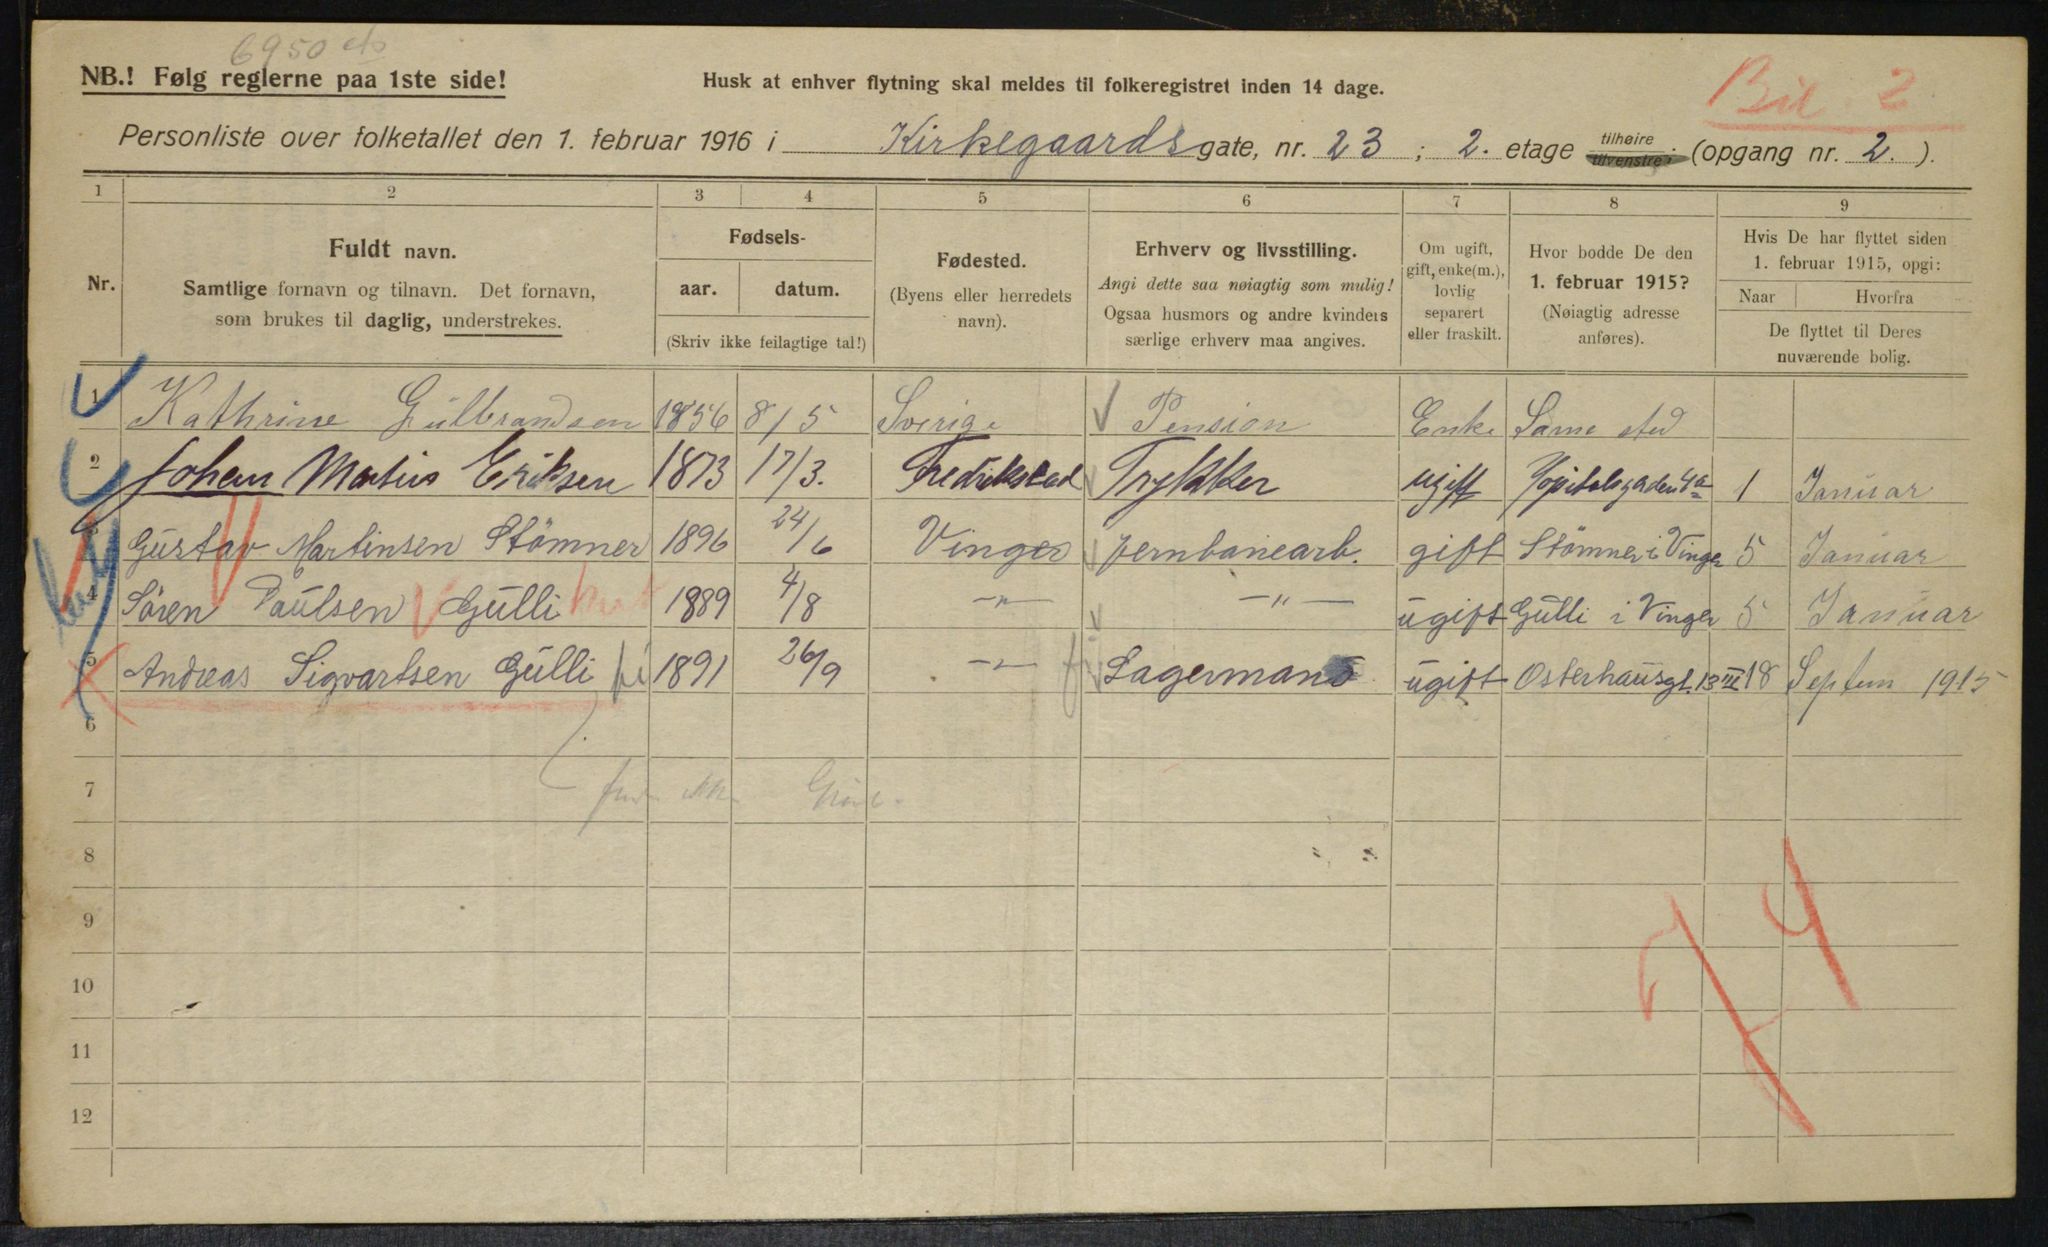 6950
NB.! Følg reglerne paa 1ste side!
Husk at enhver flytning skal meldes til folkeregistret inden 14 dage.
Bil. 2
Personliste over folketallet den 1. februar 1916 i Kirkegaardsgate, nr. 23 ; 2. etage tilhøire tilvenstre (opgang nr. 2. ).
1 2 3 4 5 6 7 8 9
Nr.
Fuldt navn.
Samtlige fornavn og tilnavn. Det fornavn,
som brukes til daglig, understrekes.
Fødsels-
aar. datum.
(Skriv ikke feilagtige tal!)
Fødested.
(Byens eller herredets
navn).
Erhverv og livsstilling.
Angi dette saa nøiagtig som mulig!
Ogsaa husmors og andre kvinders
særlige erhverv maa angives.
Om ugift,
gift, enke(m.),
lovlig
separert
eller fraskilt.
Hvor bodde De den
1. februar 1915?
(Nøiagtig adresse
anføres).
Hvis De har flyttet siden
1. februar 1915, opgi:
Naar Hvorfra
De flyttet til Deres
nuværende bolig.
1 Kathrine Gülbrandsen 1856 8/5 Sverige Pension Enke Same sted
2 Johan Martius Eriksen 1873 17/3. Fredrikstad Trykker ugift 4a 1 Januar
3 Gustav Martinsen Stömner 1896 24/6 Vinger Jernbanearb. gift Stömner i Vinger 5 Januar
4 Sören Paulsen Gülli 1889 4/8 —"— —"— ugift Gülli i Vinger 5 Januar
5 Andreas Sigvartsen Gülli 1891 26/9 —"— Lagermand ugift Osterhausgt. 13 III 18 Septem 1915
6
7
8
9
10
11
12
74